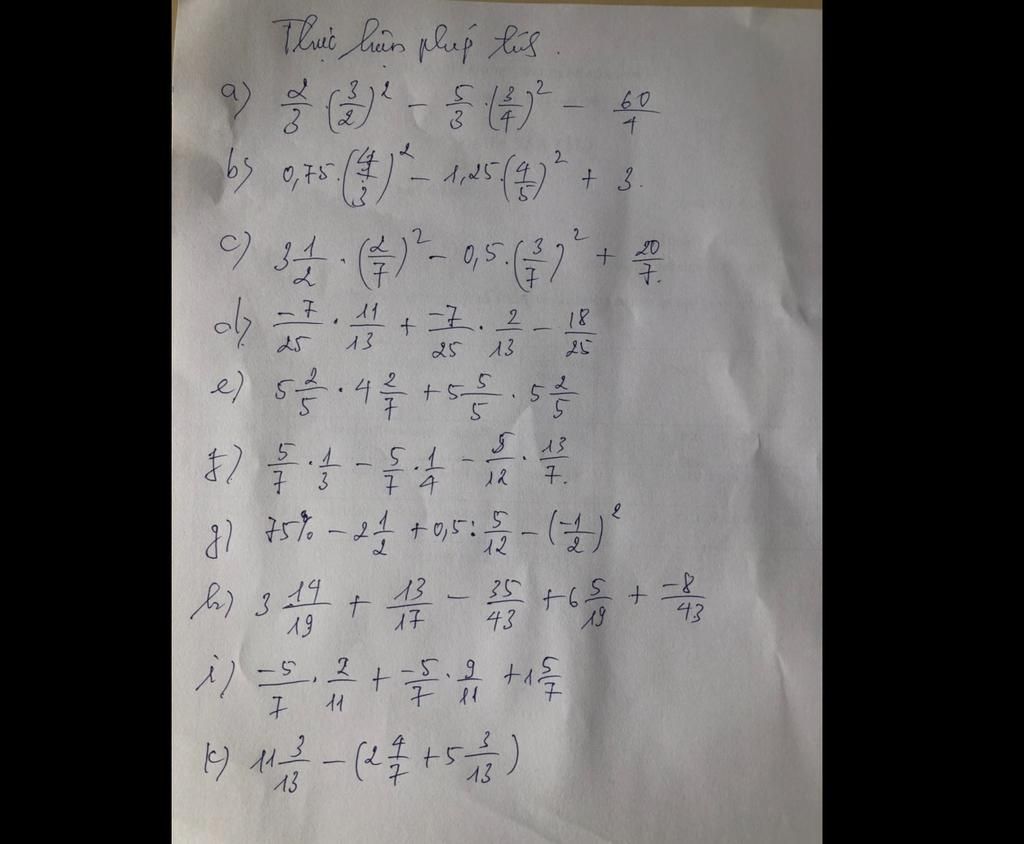 Thực hiện phép tính.
a) 2/3 . (3/2)² - 5/3 . (3/4)² - 60/4
b) 0,75 . (4/3)² - 1,25 . (4/5)² + 3.
c) 3 1/2 . (2/7)² - 0,5 . (3/7)² + 20/7.
d) -7/25 . 11/13 + -7/25 . 2/13 - 18/25
e) 5 2/5 . 4 2/7 + 5 5/5 . 5 2/5
f) 5/7 . 1/3 - 5/7 . 1/4 - 5/12 . 13/7.
g) 75% - 2 1/2 + 0,5 : 5/12 - (-1/2)²
h) 3 14/19 + 13/17 - 35/43 + 6 5/19 + -8/43
i) -5/7 . 2/11 + -5/7 . 9/11 + 1 5/7
k) 11 3/13 - (2 4/7 + 5 3/13)